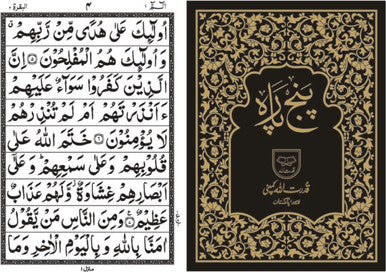 البقرة ٢
٤
الٓمّٓ ١
اُولٰٓئِكَ عَلٰى هُدًى مِّنْ رَّبِّهِمْ ۗ
وَاُولٰٓئِكَ هُمُ الْمُفْلِحُوْنَ ۝٥ اِنَّ
الَّذِيْنَ كَفَرُوْا سَوَآءٌ عَلَيْهِمْ
ءَاَنْذَرْتَهُمْ اَمْ لَمْ تُنْذِرْهُمْ
لَا يُؤْمِنُوْنَ ۝٦ خَتَمَ اللّٰهُ عَلٰى
قُلُوْبِهِمْ وَعَلٰى سَمْعِهِمْ ؕ وَعَلٰٓى
اَبْصَارِهِمْ غِشَاوَةٌ ؗ وَّلَهُمْ عَذَابٌ
عَظِيْمٌ ۝٧ وَمِنَ النَّاسِ مَنْ يَّقُوْلُ
اٰمَنَّا بِاللّٰهِ وَ بِالْيَوْمِ الْاٰخِرِ وَمَا
منزل ١
پنج پارہ
قدرت اللہ کمپنی
لاہور پاکستان